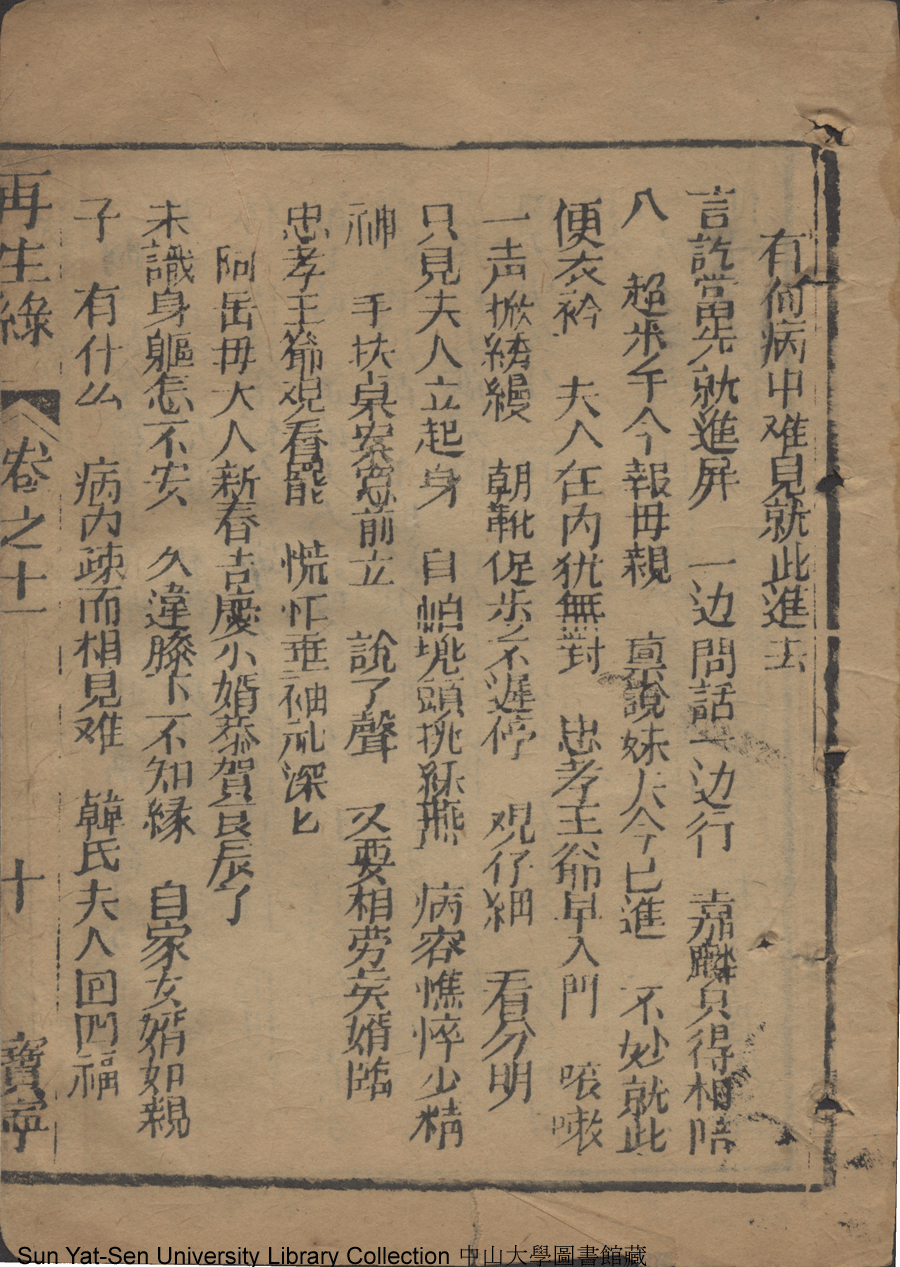 有何病中难見就此進去
言訖當先就進屏　一边問話一边行　嘉麟只得相陪
八　超米乍今報毋親　禀說妹夫今已進　不妙就此
便衣衿　夫人在内犹無對　忠孝王爺早入門　咳嗽
一声掀綉縵　朝靴促步不遲停　观仔細　看分明
只見夫人立起身　自帕兜頭挑䋛燕　病容憔悴少精
神　手扶桌案窓前立　說了聲　又要相劳美婿臨
忠孝王爺观看罷　慌忙垂袖礼深匕
阿岳毋大人新春吉慶小婿恭賀良辰了
未識身軀怎不安　久違膝下不知縁　自家女婿如親
子　有什么　病内疎而相見难　韓氏夫人回四福
再生緣　卷之十一　十　寶寧
Sun Yat-Sen University Library Collection 中山大學圖書館藏